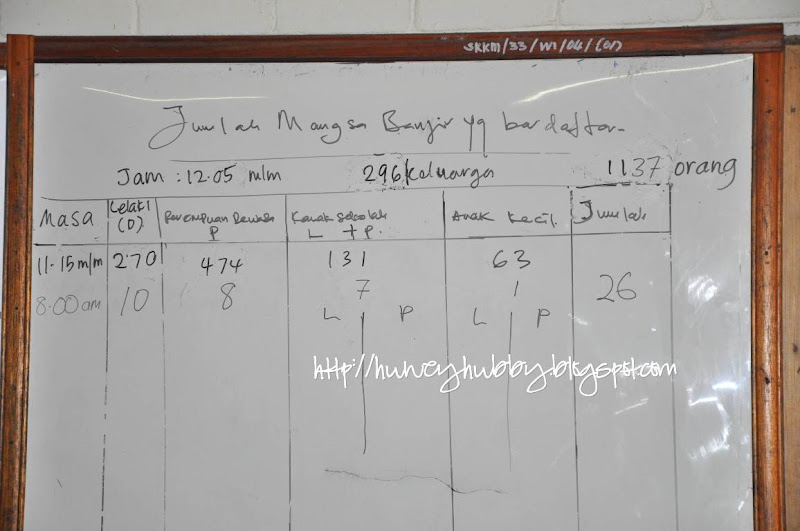 SKKM/33/W1/04/(01)
Jumlah Mangsa Banjir yg berdaftar.
Jam : 12.05 m/m 296 keluarga 1137 orang
Masa Lelaki (D) Perempuan Dewasa P Kanak sekolah L + P. Anak kecil. Jumlah
11.15 m/m 270 474 131 63
8.00 am 10 8 7 1 26
L P L P
http://huneyhubby.blogspot.com